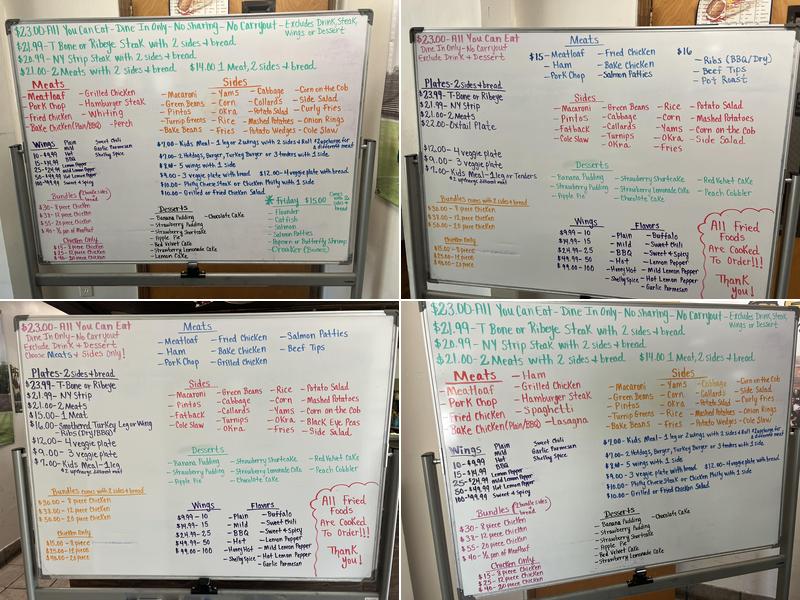 $23.00-All You Can Eat-Dine In Only-No Sharing-No Carryout-Excludes Drink, Steak, Wings or Dessert
$21.99-T Bone or Ribeye Steak with 2 sides & bread
$20.99-NY Strip Steak with 2 sides & bread
$21.00-2 Meats with 2 sides & bread $14.00 1 Meat, 2 sides & bread
Meats
-Meatloaf
-Pork Chop
-Fried Chicken
-Bake Chicken (Plain/BBQ)
-Grilled Chicken
-Hamburger Steak
-Whiting
-Perch
Sides
-Macaroni
-Green Beans
-Pintos
-Turnip Greens
-Bake Beans
-Yams
-Corn
-Okra
-Rice
-Fries
-Cabbage
-Collards
-Potato Salad
-Mashed Potatoes
-Potato Wedges
-Corn on the Cob
-Side Salad
-Curly Fries
-Onion Rings
-Cole Slaw
Wings
10-$9.99
15-$14.99
25-$24.99
50-$49.99
100-$99.99
Plain
Mild
Hot
BBQ
Lemon Pepper
Mild Lemon Pepper
Hot Lemon Pepper
Sweet & Spicy
Sweet Chili
Garlic Parmesan
Shelby Spice
$7.00-Kids Meal-1 leg or 2 wings with 2 sides & Roll
$7.00-2 Hotdogs, Burger, Turkey Burger or 3 tenders with 1 side
$8.00-5 wings with 1 side
$9.00-3 veggie plate with bread $12.00-4 veggie plate with bread
$10.00-Philly Cheese Steak or Chicken Philly with 1 side
$10.00-Grilled or Fried Chicken Salad
Bundles (2 handle sides & bread)
$30-8 piece Chicken
$38-12 piece Chicken
$55-20 piece Chicken
$40-½ pan of Meatloaf
Chicken Only
$15-8 piece Chicken
$25-12 piece Chicken
$40-20 piece Chicken
Desserts
-Banana Pudding
-Strawberry Pudding
-Strawberry Shortcake
-Apple Pie
-Red Velvet Cake
-Strawberry Lemonade Cake
-Lemon Cake
-Chocolate Cake
*Friday $15.00 Comes with 2 sides & bread
-Flounder
-Catfish
-Salmon
-Salmon Patties
-Popcorn or Butterfly Shrimp
-Croaker (Bones)
$23.00-All You Can Eat
Dine In Only-No Carryout
Exclude Drink & Dessert
Meats
$15-Meatloaf
-Ham
-Pork Chop
-Fried Chicken
-Bake Chicken
-Salmon Patties
$16
-Ribs (BBQ/Dry)
-Beef Tips
-Pot Roast
Plates-2 sides & bread
$23.99-T-Bone or Ribeye
$21.99-NY Strip
$21.00-2 Meats
$22.00-Oxtail Plate
$12.00-4 veggie plate
$9.00-3 veggie plate
$7.00-Kids Meal-1 leg or Tenders
Sides
-Macaroni
-Pintos
-Fatback
-Cole Slaw
-Green Beans
-Cabbage
-Collards
-Turnips
-Okra
-Rice
-Corn
-Yams
-Okra
-Fries
-Potato Salad
-Mashed Potatoes
-Corn on the Cob
-Side Salad
Desserts
-Banana Pudding
-Strawberry Pudding
-Apple Pie
-Strawberry Shortcake
-Strawberry Lemonade Cake
-Chocolate Cake
-Red Velvet Cake
-Peach Cobbler
Bundles come with 2 sides & bread
$30.00-8 piece Chicken
$38.00-12 piece Chicken
$50.00-20 piece Chicken
Chicken Only
$15.00-8 piece
$25.00-12 piece
$48.00-20 piece
Wings
$9.99-10
$14.99-15
$24.99-25
$49.99-50
$99.00-100
Flavors
-Plain
-Mild
-BBQ
-Hot
-Honey Hot
-Shelby Spice
-Buffalo
-Sweet Chili
-Sweet & Spicy
-Lemon Pepper
-Mild Lemon Pepper
-Hot Lemon Pepper
-Garlic Parmesan
All Fried
Foods
Are Cooked
To Order!!!
Thank
You!
$23.00-All You Can Eat
Dine In Only-No Carryout
Exclude Drink & Dessert
Choose Meats & Sides Only!
Meats
-Meatloaf
-Ham
-Pork Chop
-Fried Chicken
-Bake Chicken
-Grilled Chicken
-Salmon Patties
-Beef Tips
Plates-2 sides & bread
$23.99-T-Bone or Ribeye
$21.99-NY Strip
$21.00-2 Meats
$15.00-1 Meat
$16.00-Smothered Turkey Leg or Wing
-Ribs (Dry/BBQ)
$12.00-4 veggie plate
$9.00-3 veggie plate
$7.00-Kids Meal-1 leg
Sides
-Macaroni
-Pintos
-Fatback
-Cole Slaw
-Green Beans
-Cabbage
-Collards
-Turnips
-Okra
-Rice
-Corn
-Yams
-Okra
-Fries
-Potato Salad
-Mashed Potatoes
-Corn on the Cob
-Black Eye Peas
-Side Salad
Desserts
-Banana Pudding
-Strawberry Pudding
-Apple Pie
-Strawberry Shortcake
-Strawberry Lemonade Cake
-Chocolate Cake
-Red Velvet Cake
-Peach Cobbler
Bundles come with 2 sides & bread
$30.00-8 piece Chicken
$38.00-12 piece Chicken
$50.00-20 piece Chicken
Chicken Only
$15.00-8 piece
$25.00-12 piece
$48.00-20 piece
Wings
$9.99-10
$14.99-15
$24.99-25
$49.99-50
$99.00-100
Flavors
-Plain
-Mild
-BBQ
-Hot
-Honey Hot
-Shelby Spice
-Buffalo
-Sweet Chili
-Sweet & Spicy
-Lemon Pepper
-Mild Lemon Pepper
-Hot Lemon Pepper
-Garlic Parmesan
All Fried
Foods
Are Cooked
To Order!!!
Thank
You!
$23.00-All You Can Eat-Dine In Only-No Sharing-No Carryout-Excludes Drink, Steak, Wings or Dessert
$21.99-T Bone or Ribeye Steak with 2 sides & bread
$20.99-NY Strip Steak with 2 sides & bread
$21.00-2 Meats with 2 sides & bread $14.00 1 Meat, 2 sides & bread
Meats
-Meatloaf
-Pork Chop
-Fried Chicken
-Bake Chicken (Plain/BBQ)
-Ham
-Grilled Chicken
-Hamburger Steak
-Spaghetti
-Lasagna
Sides
-Macaroni
-Green Beans
-Pintos
-Turnip Greens
-Bake Beans
-Yams
-Corn
-Okra
-Rice
-Fries
-Cabbage
-Collards
-Potato Salad
-Mashed Potatoes
-Potato Wedges
-Corn on the Cob
-Side Salad
-Curly Fries
-Onion Rings
-Cole Slaw
Wings
10-$9.99
15-$14.99
25-$24.99
50-$49.99
100-$99.99
Plain
Mild
Hot
BBQ
Lemon Pepper
Mild Lemon Pepper
Hot Lemon Pepper
Sweet & Spicy
Sweet Chili
Garlic Parmesan
Shelby Spice
$7.00-Kids Meal-1 leg or 2 wings with 2 sides & Roll
$7.00-2 Hotdogs, Burger, Turkey Burger or 3 tenders with 1 side
$8.00-5 wings with 1 side
$9.00-3 veggie plate with bread $12.00-4 veggie plate with bread
$10.00-Philly Cheese Steak or Chicken Philly with 1 side
$10.00-Grilled or Fried Chicken Salad
Bundles (2 handle sides & bread)
$30-8 piece Chicken
$38-12 piece Chicken
$55-20 piece Chicken
$40-½ pan of Meatloaf
Chicken Only
$15-8 piece Chicken
$25-12 piece Chicken
$40-20 piece Chicken
Desserts
-Banana Pudding
-Strawberry Pudding
-Strawberry Shortcake
-Apple Pie
-Red Velvet Cake
-Strawberry Lemonade Cake
-Chocolate Cake